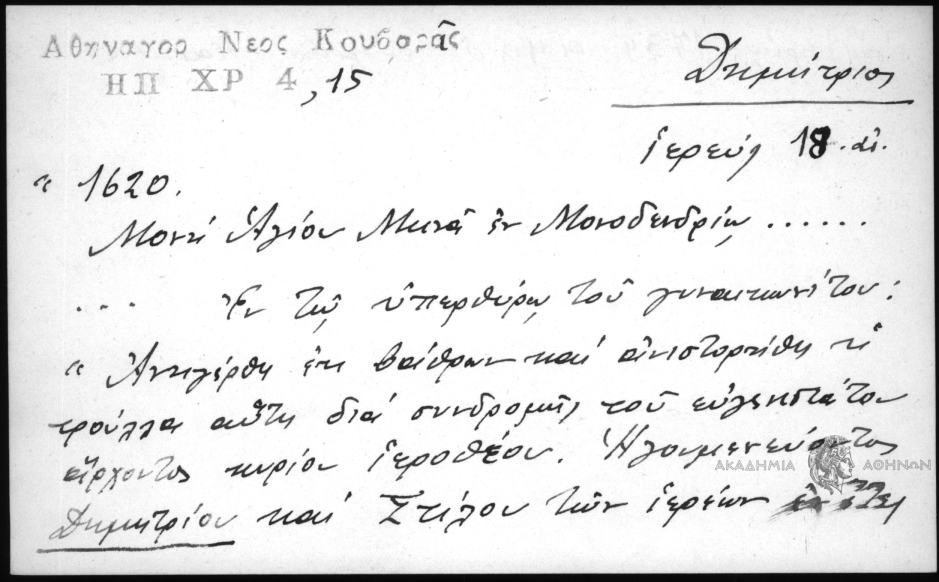 Αθηναγορ Νεος Κουβαρᾶς
ΗΠ ΧΡ 4, 15
Δημήτριος
ἱερεύς 18. αἰ.
« 1620.
Μονή Ἁγίου Μηνᾶ ἐν Μονοδενδρίῳ ......
... Ἐν τῷ ὑπερθύρῳ τοῦ γυναικωνίτου:
« Ἀνηγέρθη ἐκ βάθρων καί ἀνιστορήθη ἡ
τρούλλα αὕτη διά συνδρομῆς τοῦ εὐγενεστάτου
ἄρχοντος κυρίου Ἱεροθέου. Ἡγουμενεύοντος
ΑΚΑΔΗΜΙΑ ΑΘΗΝΩΝ
Δημητρίου καί Στίλου τῶν ἱερέων